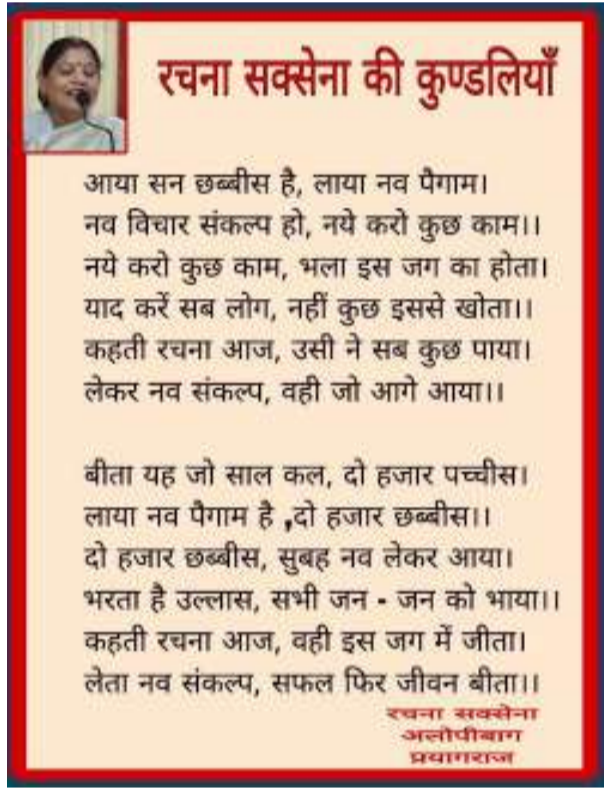 रचना सक्सेना की कुण्डलियाँ
आया सन छब्बीस है, लाया नव पैगाम।
नव विचार संकल्प हो, नये करो कुछ काम।।
नये करो कुछ काम, भला इस जग का होता।
याद करें सब लोग, नहीं कुछ इससे खोता।।
कहती रचना आज, उसी ने सब कुछ पाया।
लेकर नव संकल्प, वही जो आगे आया।।
बीता यह जो साल कल, दो हजार पच्चीस।
लाया नव पैगाम है ,दो हजार छब्बीस।।
दो हजार छब्बीस, सुबह नव लेकर आया।
भरता है उल्लास, सभी जन - जन को भाया।।
कहती रचना आज, वही इस जग में जीता।
लेता नव संकल्प, सफल फिर जीवन बीता।।
रचना सक्सेना
अलोपीबाग
प्रयागराज